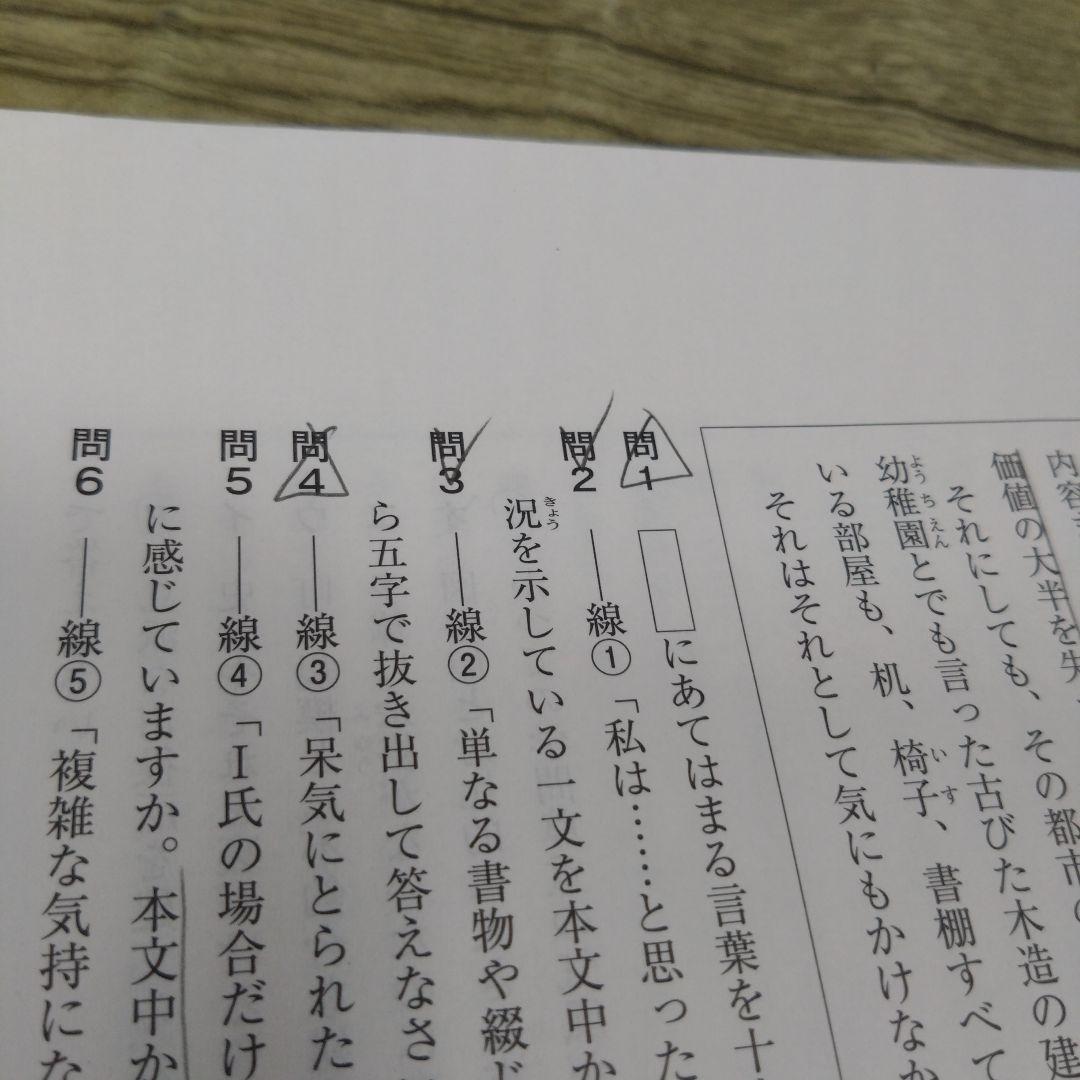 内容
価値の大半を失
それにしても、その都市の
幼稚園とでも言った古びた木造の建
いる部屋も、机、椅子、書棚すべて
それはそれとして気にもかけなか
問1 にあてはまる言葉を十
問2 ——線①「私は……と思った
況を示している一文を本文中か
問3 ——線②「単なる書物や綴じ
ら五字で抜き出して答えなさ
問4 ——線③「呆気にとられた
問5 ——線④「I氏の場合だけ
に感じていますか。本文中か
問6 ——線⑤「複雑な気持にな